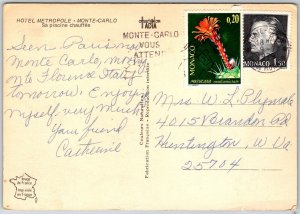 HOTEL METROPOLE - MONTE-CARLO
Sa piscine chauffée
MONTE-CARLO
VOUS
ATTEND
0,20
MONACO
MONACO
1,50
Seen Paris now
Monte Carlo, moving
into Florence Italy
tomorrow. Enjoying
myself very much.
Your friend
Catherine
Mrs. W. L. Plymale
4015 Brandon Rd
Huntington, W. Va
25704